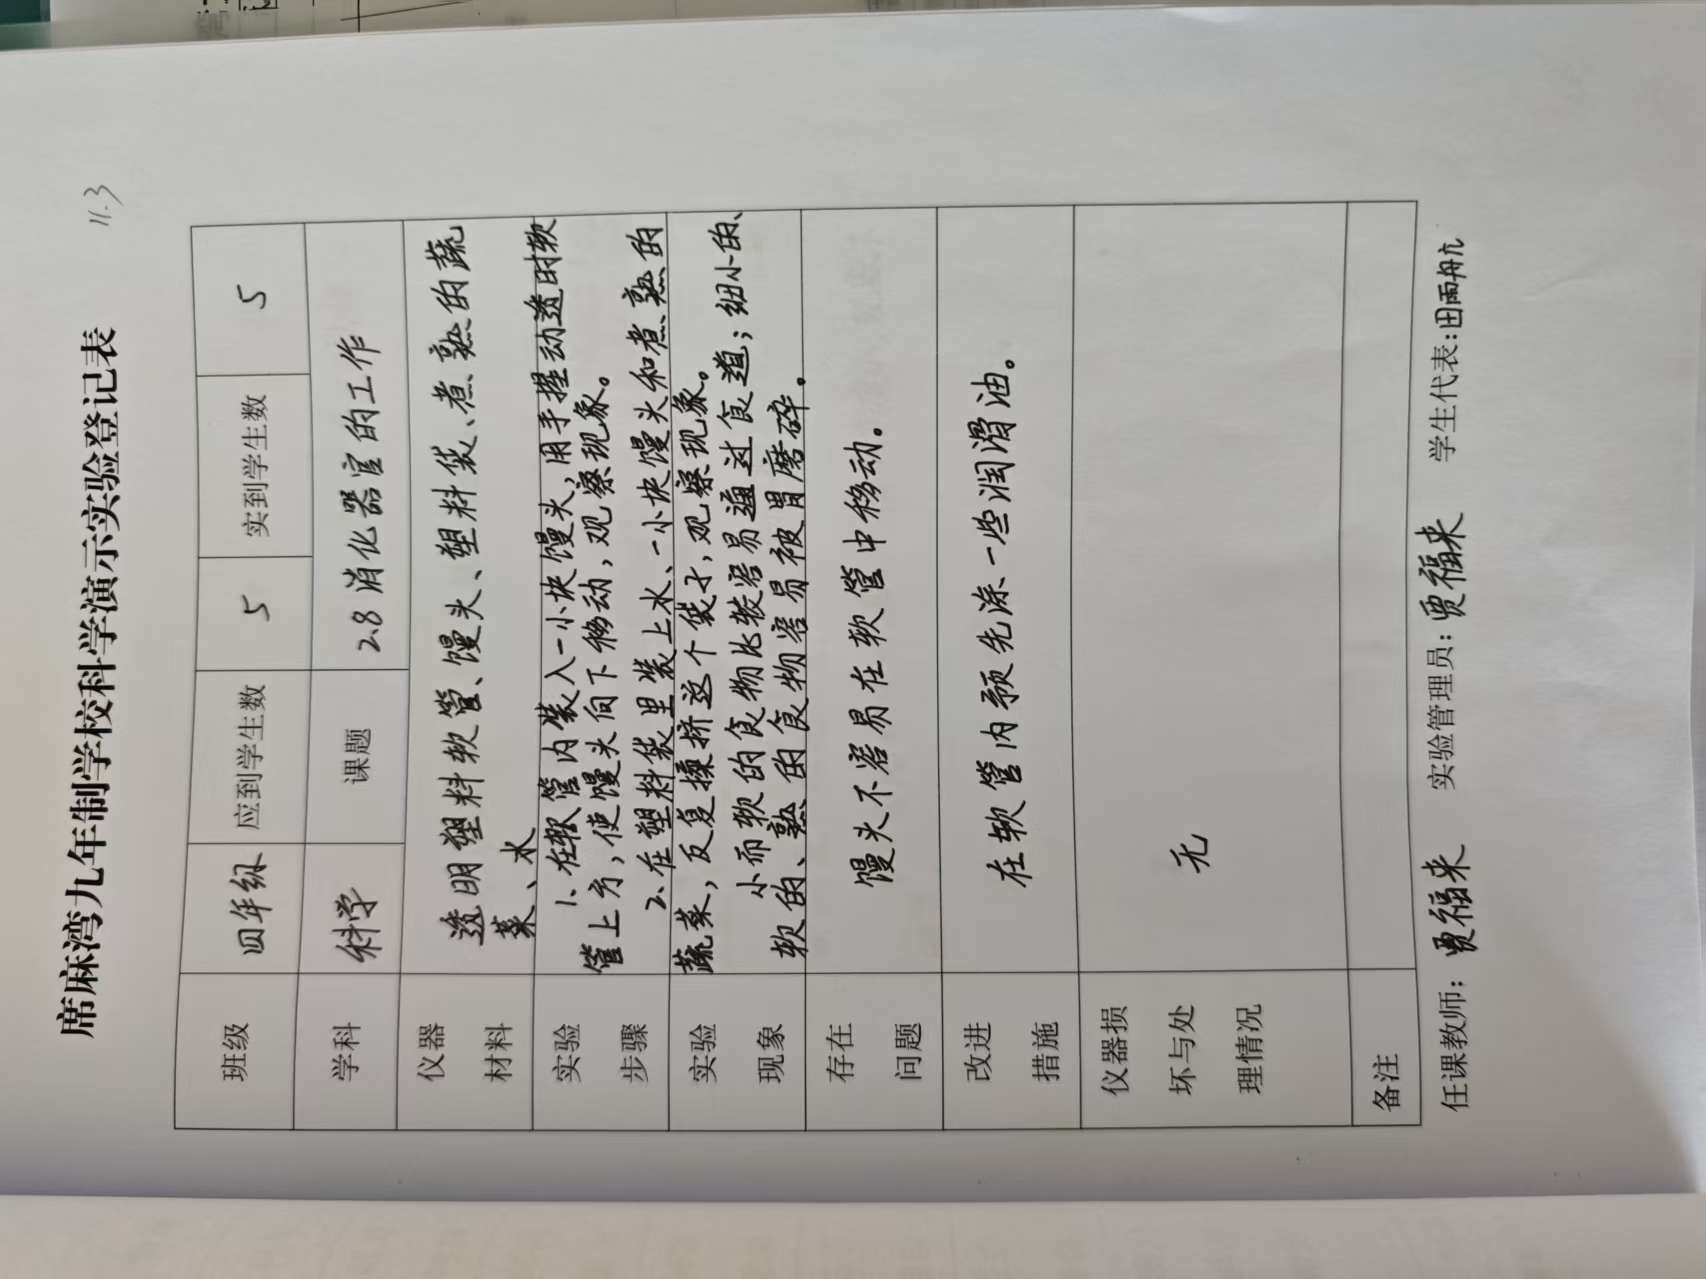 席麻湾九年制学校科学演示实验登记表
11.3
班级 四年级 应到学生数 5 实到学生数 5
学科 科学 课题 2.8 消化器官的工作
仪器 材料
透明塑料软管、馒头、塑料袋、煮熟的蔬
菜、水
实验 步骤
1、在软管内装入一小块馒头,用手握动透时软
管上方,使馒头向下移动,观察现象。
2、在塑料袋里装上水、一小块馒头和煮熟的
蔬菜,反复揉挤这个袋子,观察现象。
实验 现象
小而软的食物比较容易通过食道;细小的、
软的、熟的食物容易被胃磨碎。
存在 问题
馒头不容易在软管中移动。
改进 措施
在软管内预先涂一些润滑油。
仪器损
坏与处
理情况
无
备注
任课教师: 贾福来 实验管理员: 贾福来 学生代表: 田雨舟